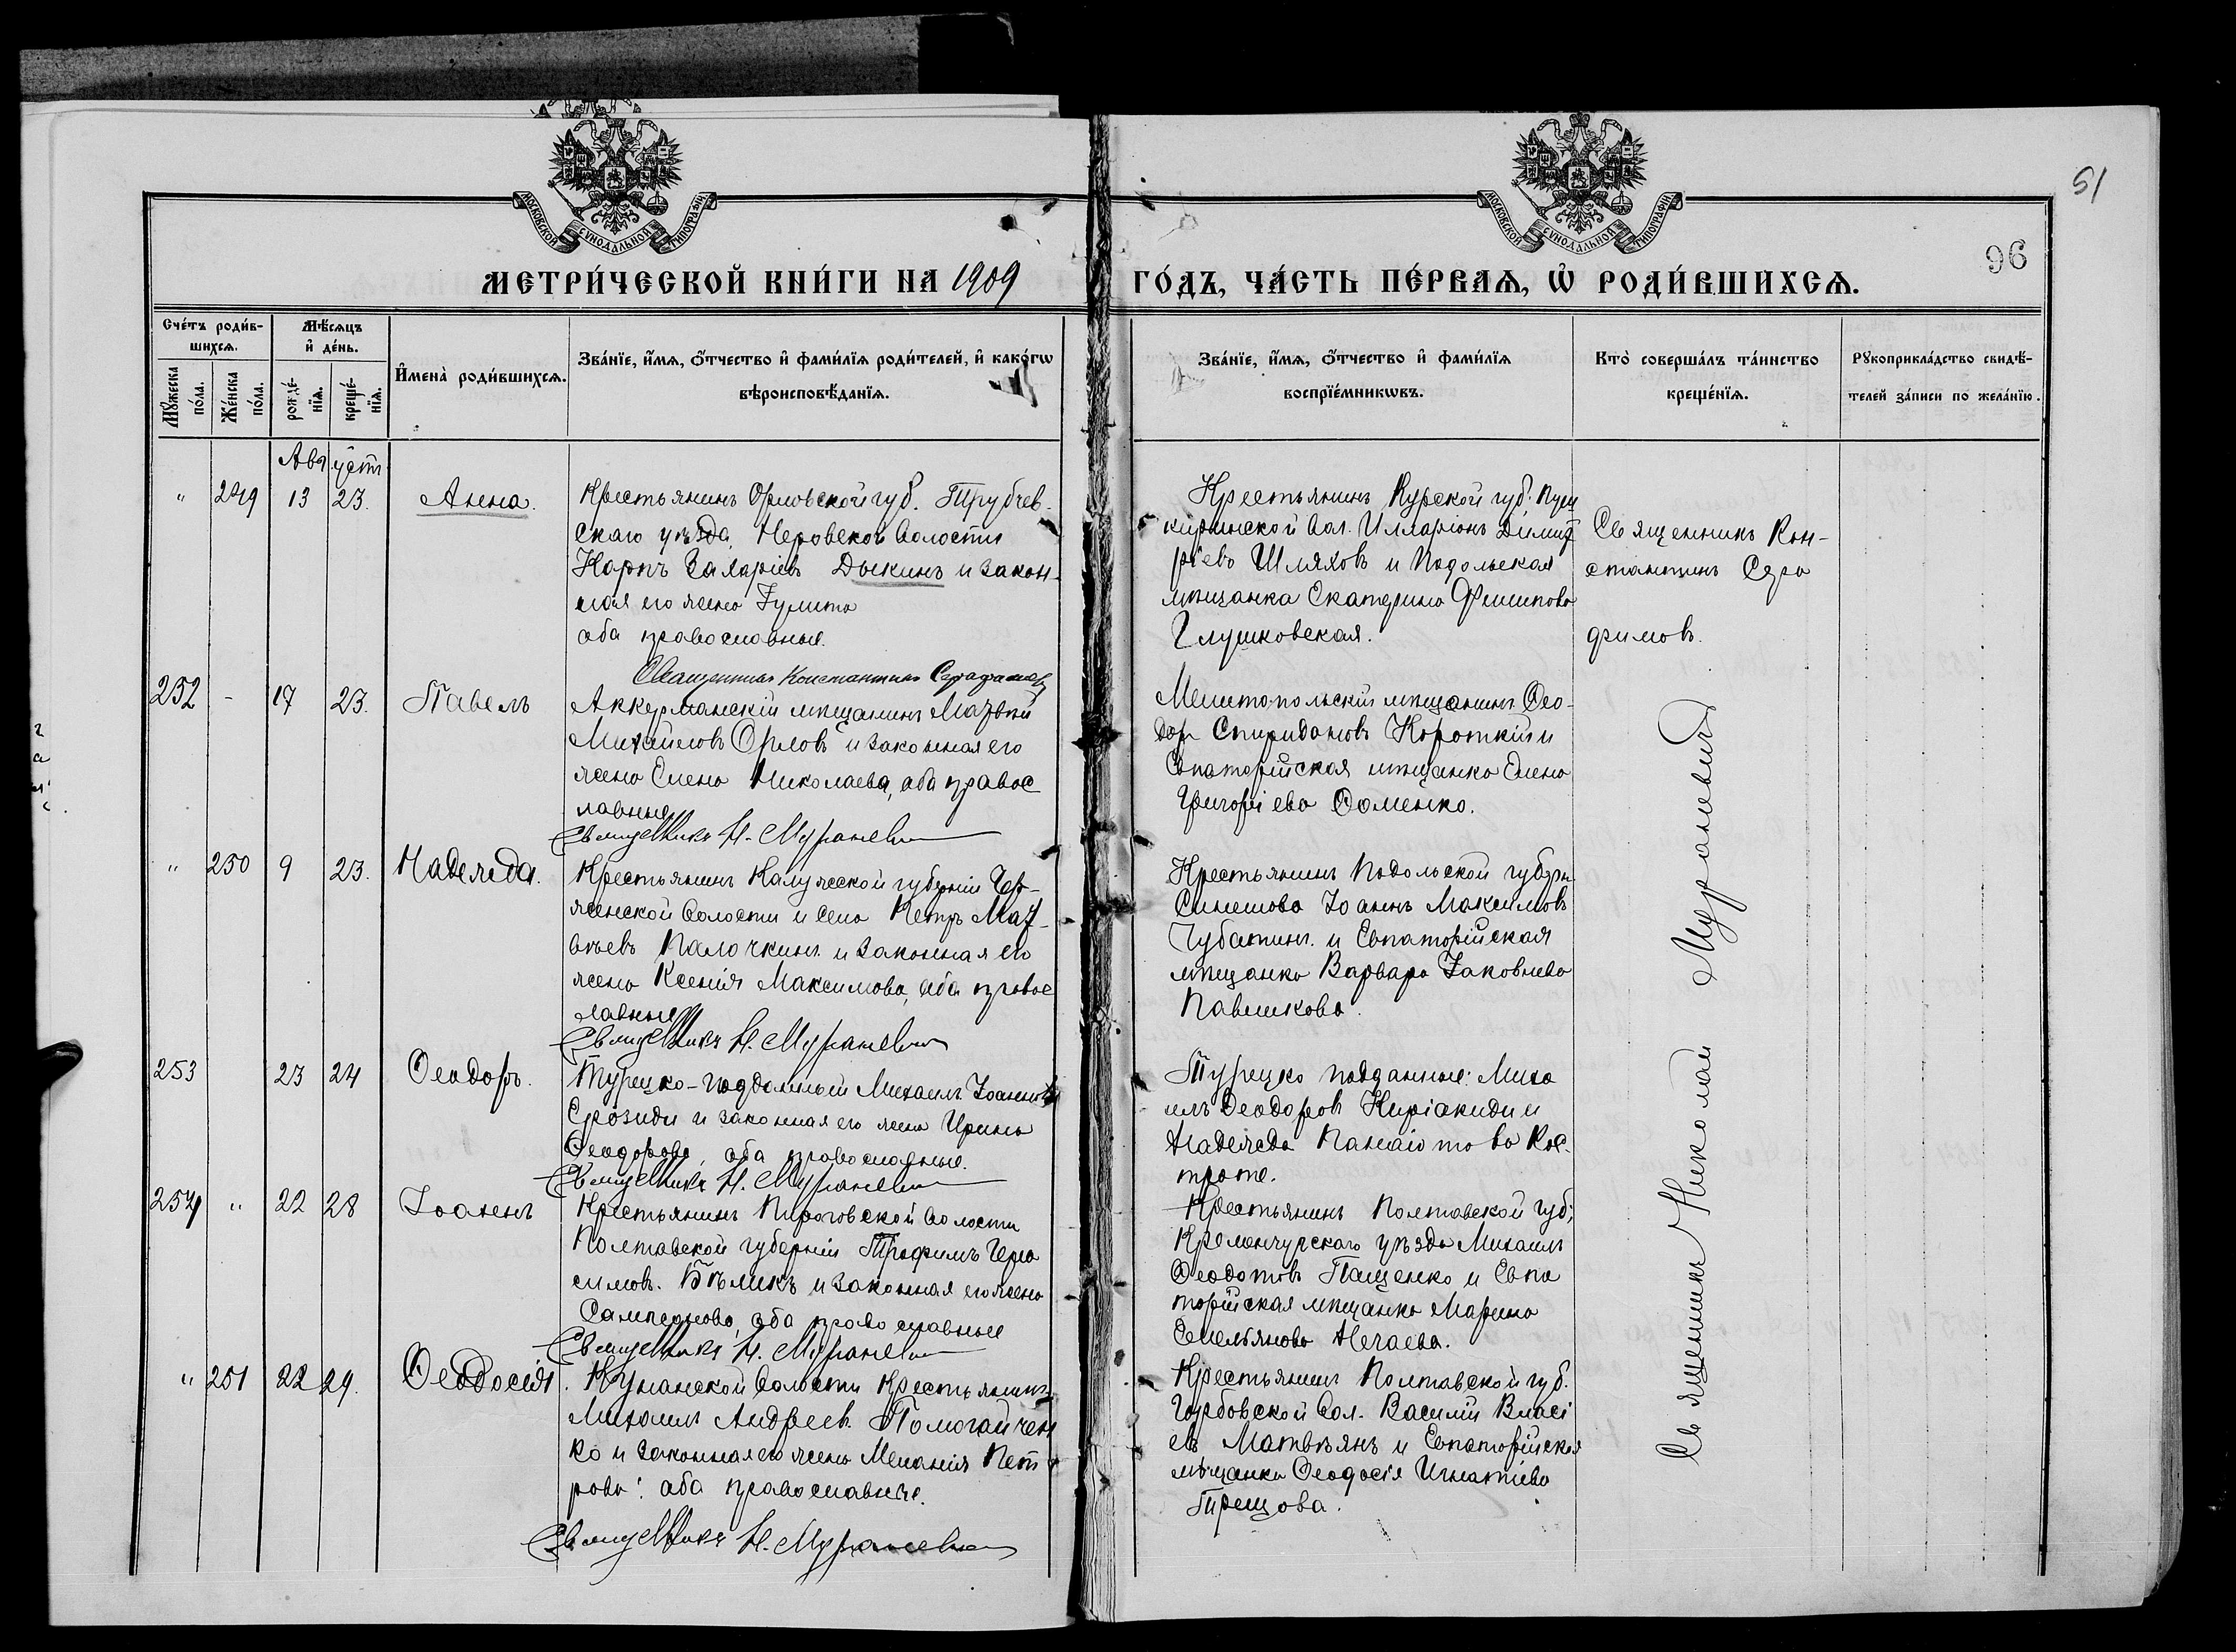 51
96
МОСКОВСКОЙ СѴНОДАЛЬНОЙ ТИПОГРАФІИ
МОСКОВСКОЙ СѴНОДАЛЬНОЙ ТИПОГРАФІИ
МЕТРИ́ЧЕСКОЙ КНИ́ГИ НА 1909
ГО́ДЪ, ЧА́СТЬ ПЕ́РВАѦ, Ѡ҆ РОДИ́ВШИХСѦ.
Сче́тъ роди́в-
шихсѧ.
Мѣ́сѧцъ
и҆ де́нь.
Мꙋ́жеска
по́ла.
Же́нска
по́ла.
рожде́-
нїѧ.
креще́-
нїѧ.
И҆мена̀ роди́вшихсѧ.
Зва́нїе, и҆́мѧ, ѻ҆́тчество и҆ фами́лїѧ роди́телей, и҆ како́гѡ
вѣроисповѣ́данїѧ.
Зва́нїе, и҆́мѧ, ѻ҆́тчество и҆ фами́лїѧ
воспрїе́мникѡвъ.
Кто̀ соверша́лъ та́инство
креще́нїѧ.
Рꙋкоприкла́дство свидѣ́-
телей за́писи по жела́нїю.
Августъ
" 249 13 23. Анна.
Крестьянинъ Орловской губ. Трубчев-
скаго уѣзда, Неровской волости
Карпъ Дыкинъ и закон-
ная его жена
оба православные.
Священникъ Константинъ Серафимовъ
Крестьянинъ Курской губ.
Вол. Илларіонъ Димит
ріевъ Шляховъ и Подольская
мѣщанка Екатерина Филипова
Глушковская.
Священникъ Кон-
стантинъ Сера
фимовъ.
252 - 17 23. Павелъ
Аккерманскій мѣщанинъ Матвій
Михайловъ Орловъ и законная его
жена Елена Николаева, оба правос
лавные
Священникъ Н. Мураневич
Мелитопольскій мѣщанинъ Ѳео-
доръ Спиридоновъ Короткій и
Евпаторійская мѣщанка Елена
Григоріева Фоменко.
" 250 9 23. Надежда.
Крестьянинъ Калужской губерніи
волости и села Петръ Мат-
вѣевъ Палочкинъ и законная его
жена Ксенія Максимова, оба правос
лавные
Священникъ Н. Мураневич
Крестьянинъ Подольской губерн
Іоаннъ Максимовъ
Чубатинъ и Евпаторійская
мѣщанка Варвара Іаковлева
Павликова.
253 23 24 Ѳеодоръ.
Турецко-подданный Михаилъ Іоанновъ
и законная его жена Ирина
Ѳеодорова, оба православные.
Священникъ Н. Мураневич
Турецко подданные: Миха
илъ Ѳеодоровъ Киріакиди и
Надежда Панаіотова
254 " 22 28 Іоаннъ
Крестьянинъ Пироговской волости
Полтавской губерніи Трофимъ Гера
симовъ Бѣликъ и законная его жена
оба православные
Священникъ Н. Мураневич
Крестьянинъ Полтавской губ;
Кременчугскаго уѣзда Михаилъ
Ѳеодотовъ Пащенко и Евпа
торійская мѣщанка Марина
Емельянова Нечаева.
" 251 22 29. Ѳеодосія.
волости крестьянинъ
Михаилъ Андреевъ Помогайчен
ко и законная его жена Меланія Пет
рова: оба православные.
Священникъ Н. Мураневич
Крестьянинъ Полтавской губ.
Горбовской вол. Василій Власі
евъ Матвѣянъ и Евпаторійская
мѣщанка Ѳеодосія Игнатіева
Трещова.
Священникъ Николай Мураневичъ